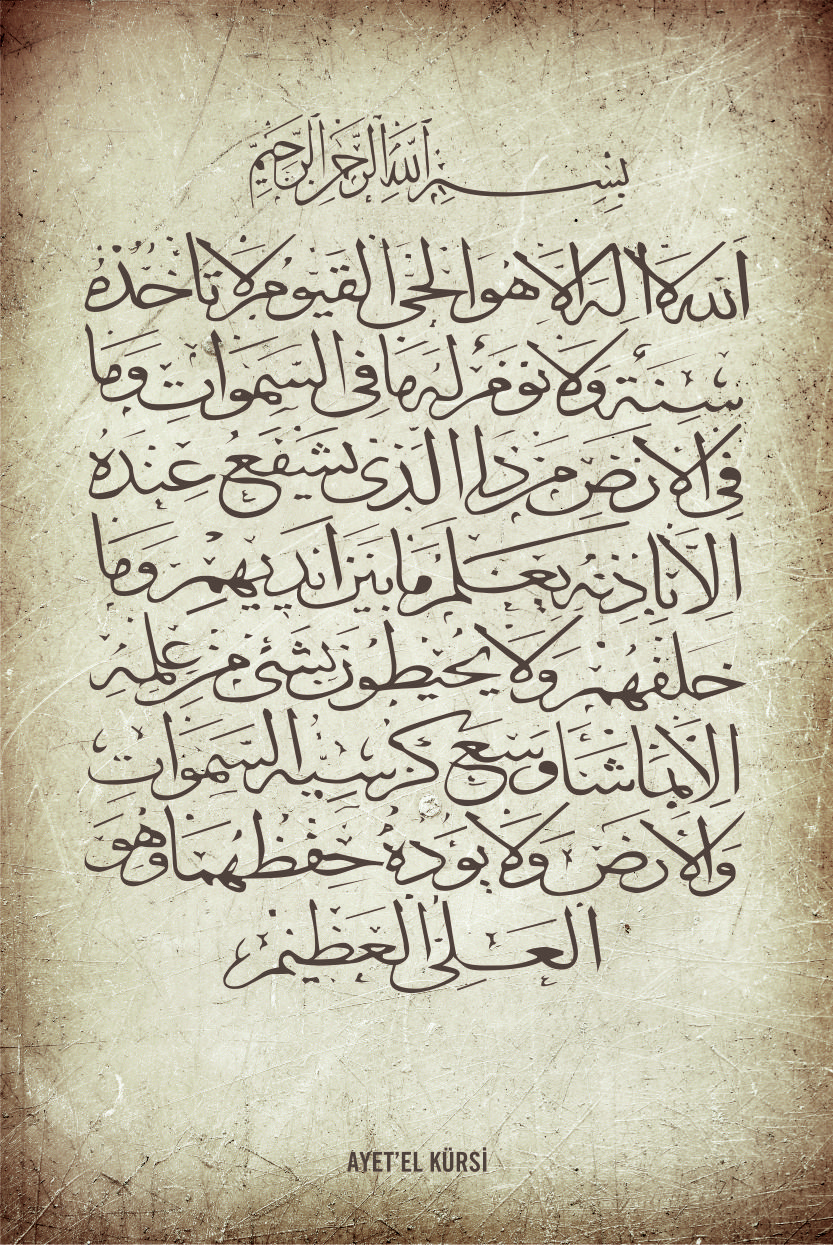 بسم الله الرحمن الرحيم
الله لا اله الا هو الحي القيوم لا تاخذه
سنة ولا نوم له ما في السموات وما
في الارض من ذا الذي يشفع عنده
الا باذنه يعلم ما بين ايديهم وما
خلفهم ولا يحيطون بشئ من علمه
الا بما شاء وسع كرسيه السموات
والارض ولا يؤده حفظهما وهو
العلي العظيم
AYET'EL KÜRSİ